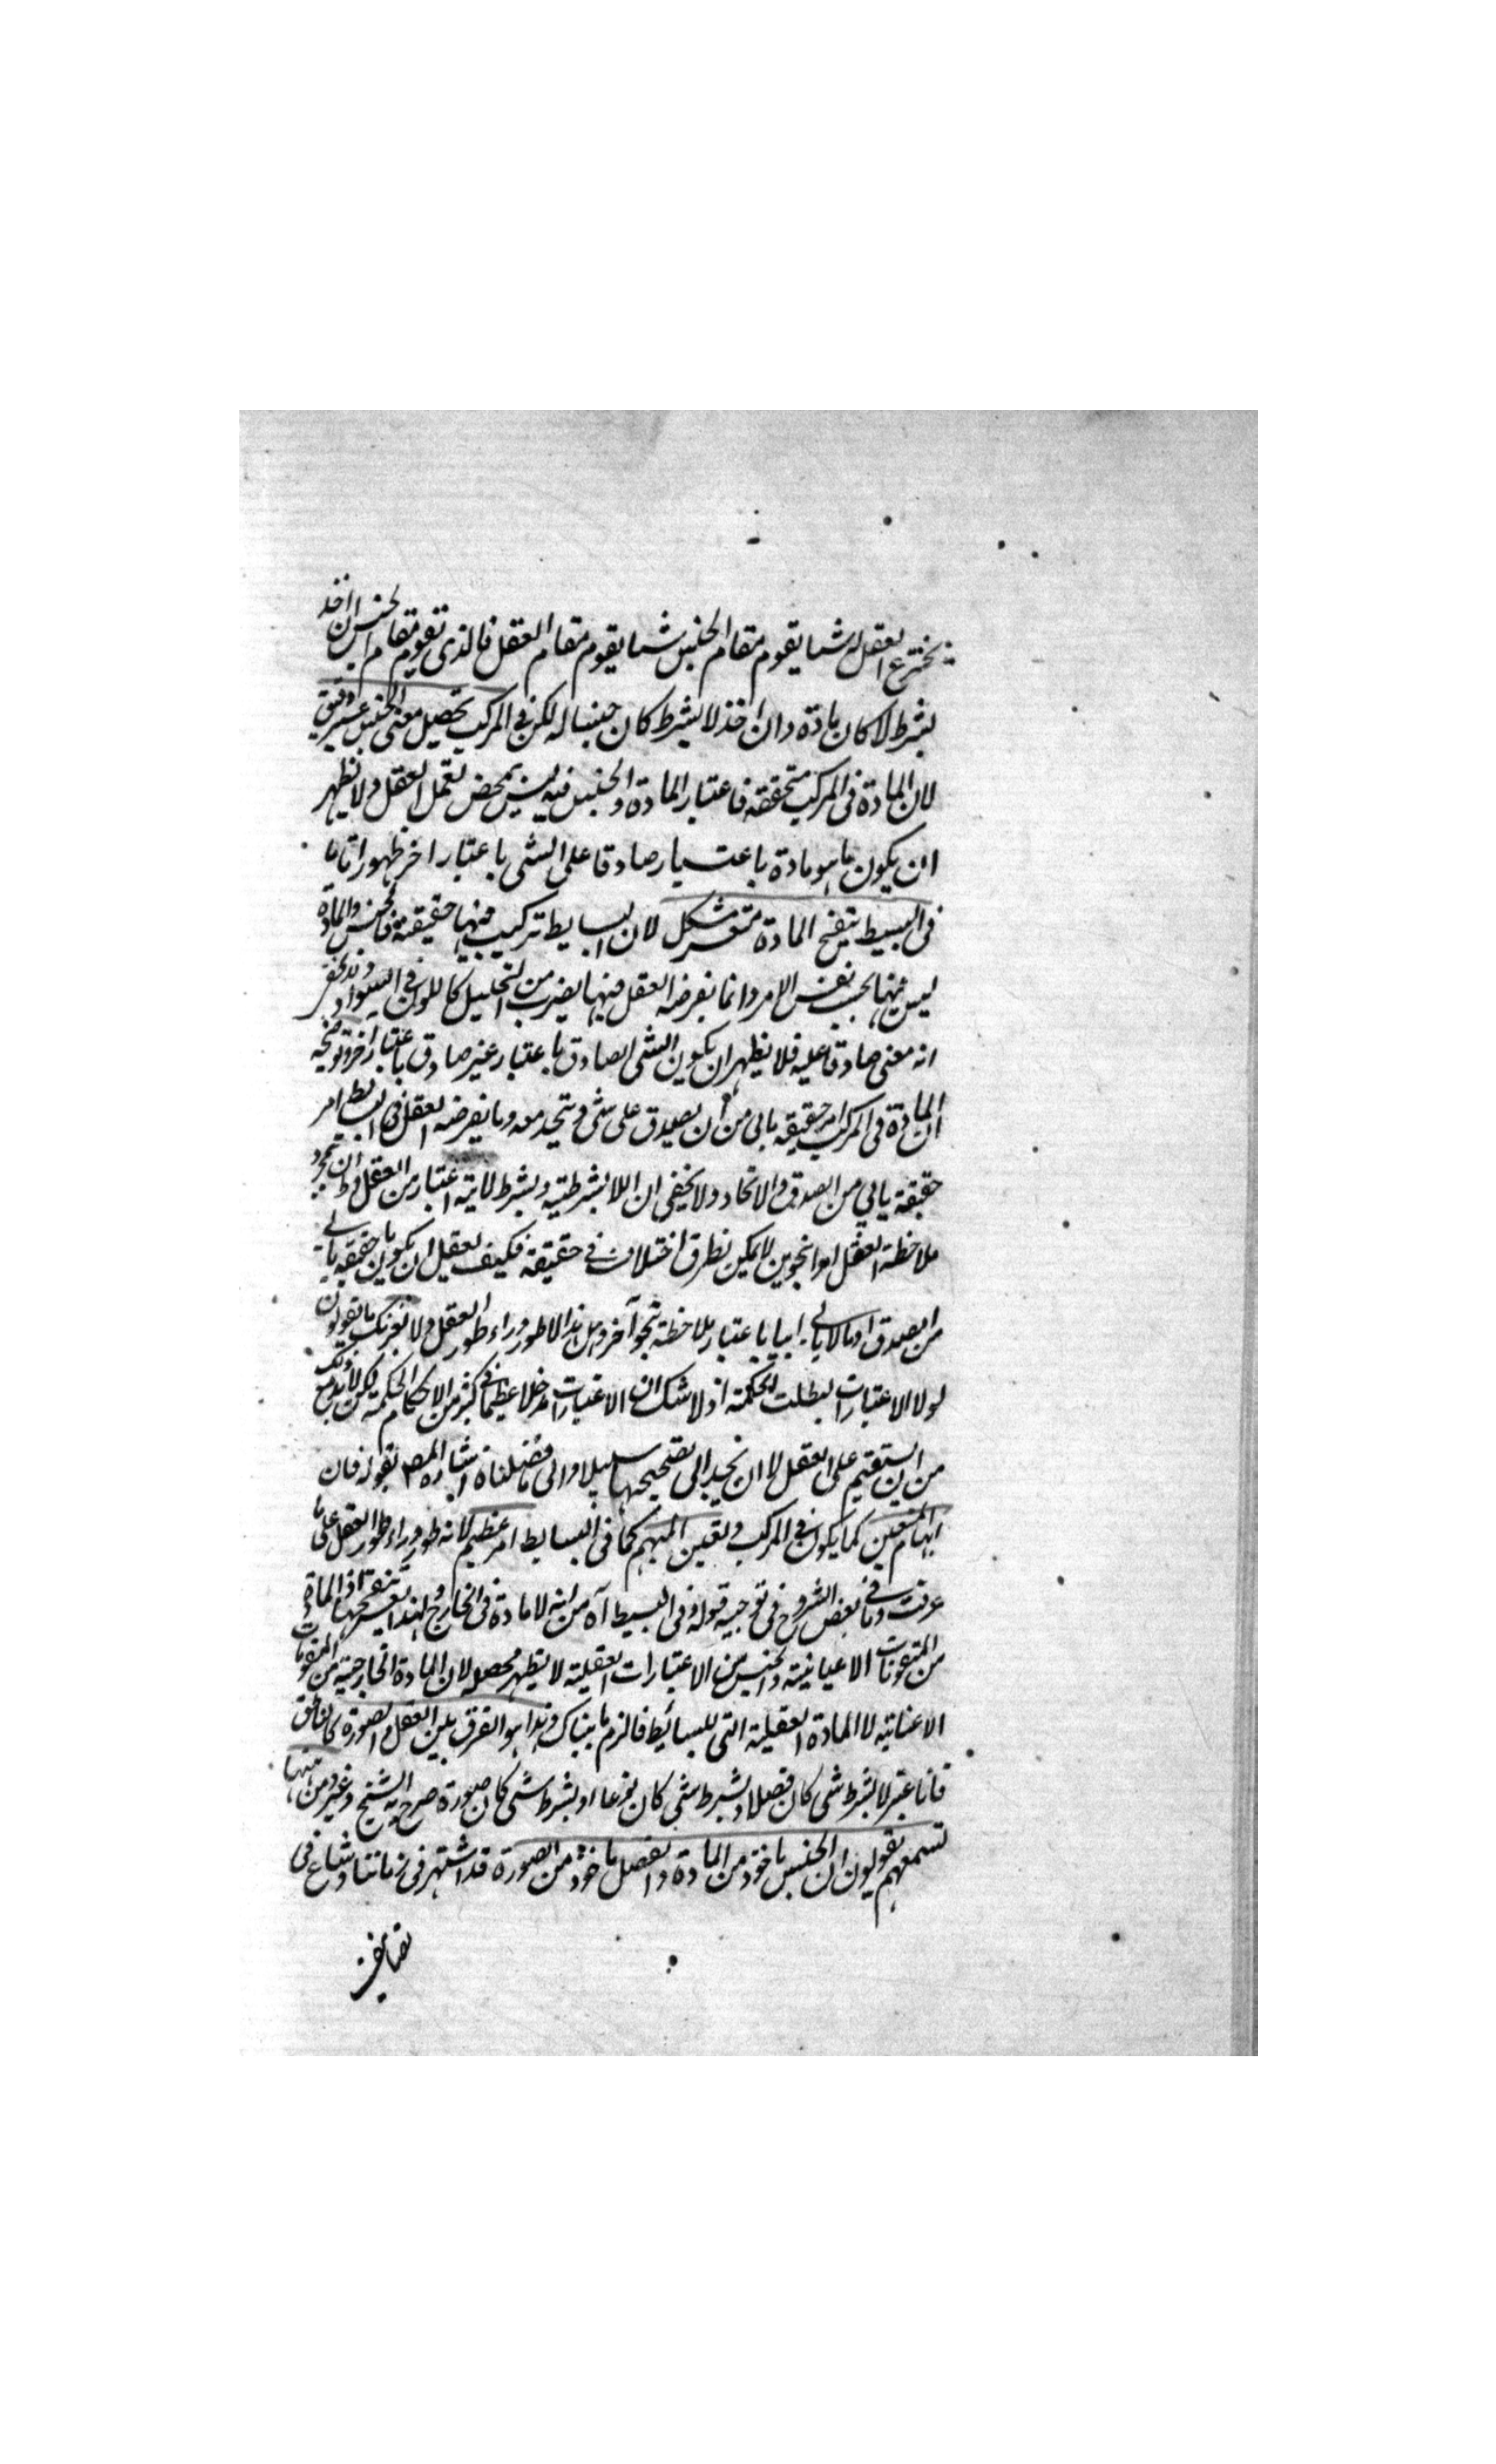 يخترع العقل له شيئا يقوم مقام الجنس شيئا يقوم مقام العقل فالذي يقوم مقام الجنس ان اخذ
بشرط لا كان مادة وان اخذ لا بشرط كان جنسا له لكن في المركب تحصيل معنى الجنس عسير دقيق
لان المادة في المركب متحققة فاعتبار المادة والجنس فيه ليس بمحض تعمل العقل ولا يظهر
ان يكون ما هو مادة باعتبار صادقا على الشي باعتبار اخر ظهورا تاما
في البسيط تنقيح المادة متعسر مشكل لان البسايط تركيب فيها حقيقة فالجنس والمادة
ليس فيها بحسب نفس الامر وانما يفرضه العقل فيها بضرب من التحليل كاللون في السواد
انه معنى صادقا عليه فلا يظهر ان يكون الشي الصادق باعتبار غير صادق باعتبار اخر وتوضيحه
ان المادة في المركب امر حقيقة يابى من ان يصدق على شي ويتحد معه وما يفرضه العقل في البسايط امر
حقيقة يابى من الصدق والاتحاد ولا يخفى ان اللابشرطية وبشرط لائية اعتبار من العقل وظ ان بمجرد
ملاحظة العقل امرا بنحوين لا يمكن تطرق اختلاف في حقيقة فكيف يعقل ان يكون ما حقيقة يابى
من الصدق او ما لا يابى ابيا باعتبار ملاحظة بنحو آخر وهل هذا الا طور وراء طور العقل ولا تغرنك ما يقولون
لولا الاعتبارات لبطلت الحكمة اذ لا شك ان الاعتبارات مدخلا عظيما في كثير من الاحكام الحكمة لكن لا بد مع ذلك
من ان يستقيم على العقل لا ان نجد الى تصحيحها سبيلا والى ما فصلناه اشاره المص بقوله فان
ابهام المتعين كما يكون في المركب وتعين المبهم كما في البسايط امر عظيم لانه طور وراء طور العقل على ما
عرفت وما في بعض الشروح في توجيه قوله وفي البسيط آه من انه لا مادة في الخارج ولهذا يعسر تنقيحها اذ المادة
من المتقومات الاعيانية والجنس من الاعتبارات العقلية لا يظهر محصله لان المادة الخارجية من المتقومات
الاعيانية لا المادة العقلية التي للبسائط فالزم ما هناك وهذا هو الفرق بين العقل والصورة كالناطق
فانا عتبر لا بشرط شي كان فصلا وبشرط شي كان نوعا او بشرط شي كان صورة صرح به الشيخ وغيره ومن هنا
تسمعهم يقولون ان الجنس ماخوذ من المادة والفصل ماخوذ من الصورة قد اشتهر في زماننا وشاع في
تصانيف